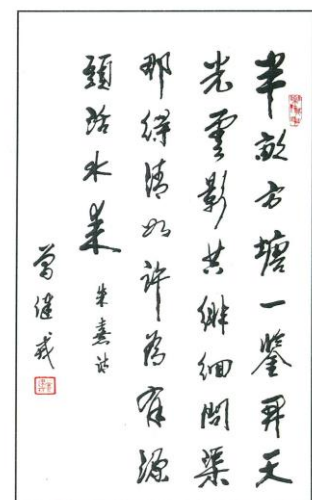 半畝方塘一鑒開天
光雲影共徘徊問渠
那得清如許為有源
頭活水来 朱熹詩
曾健